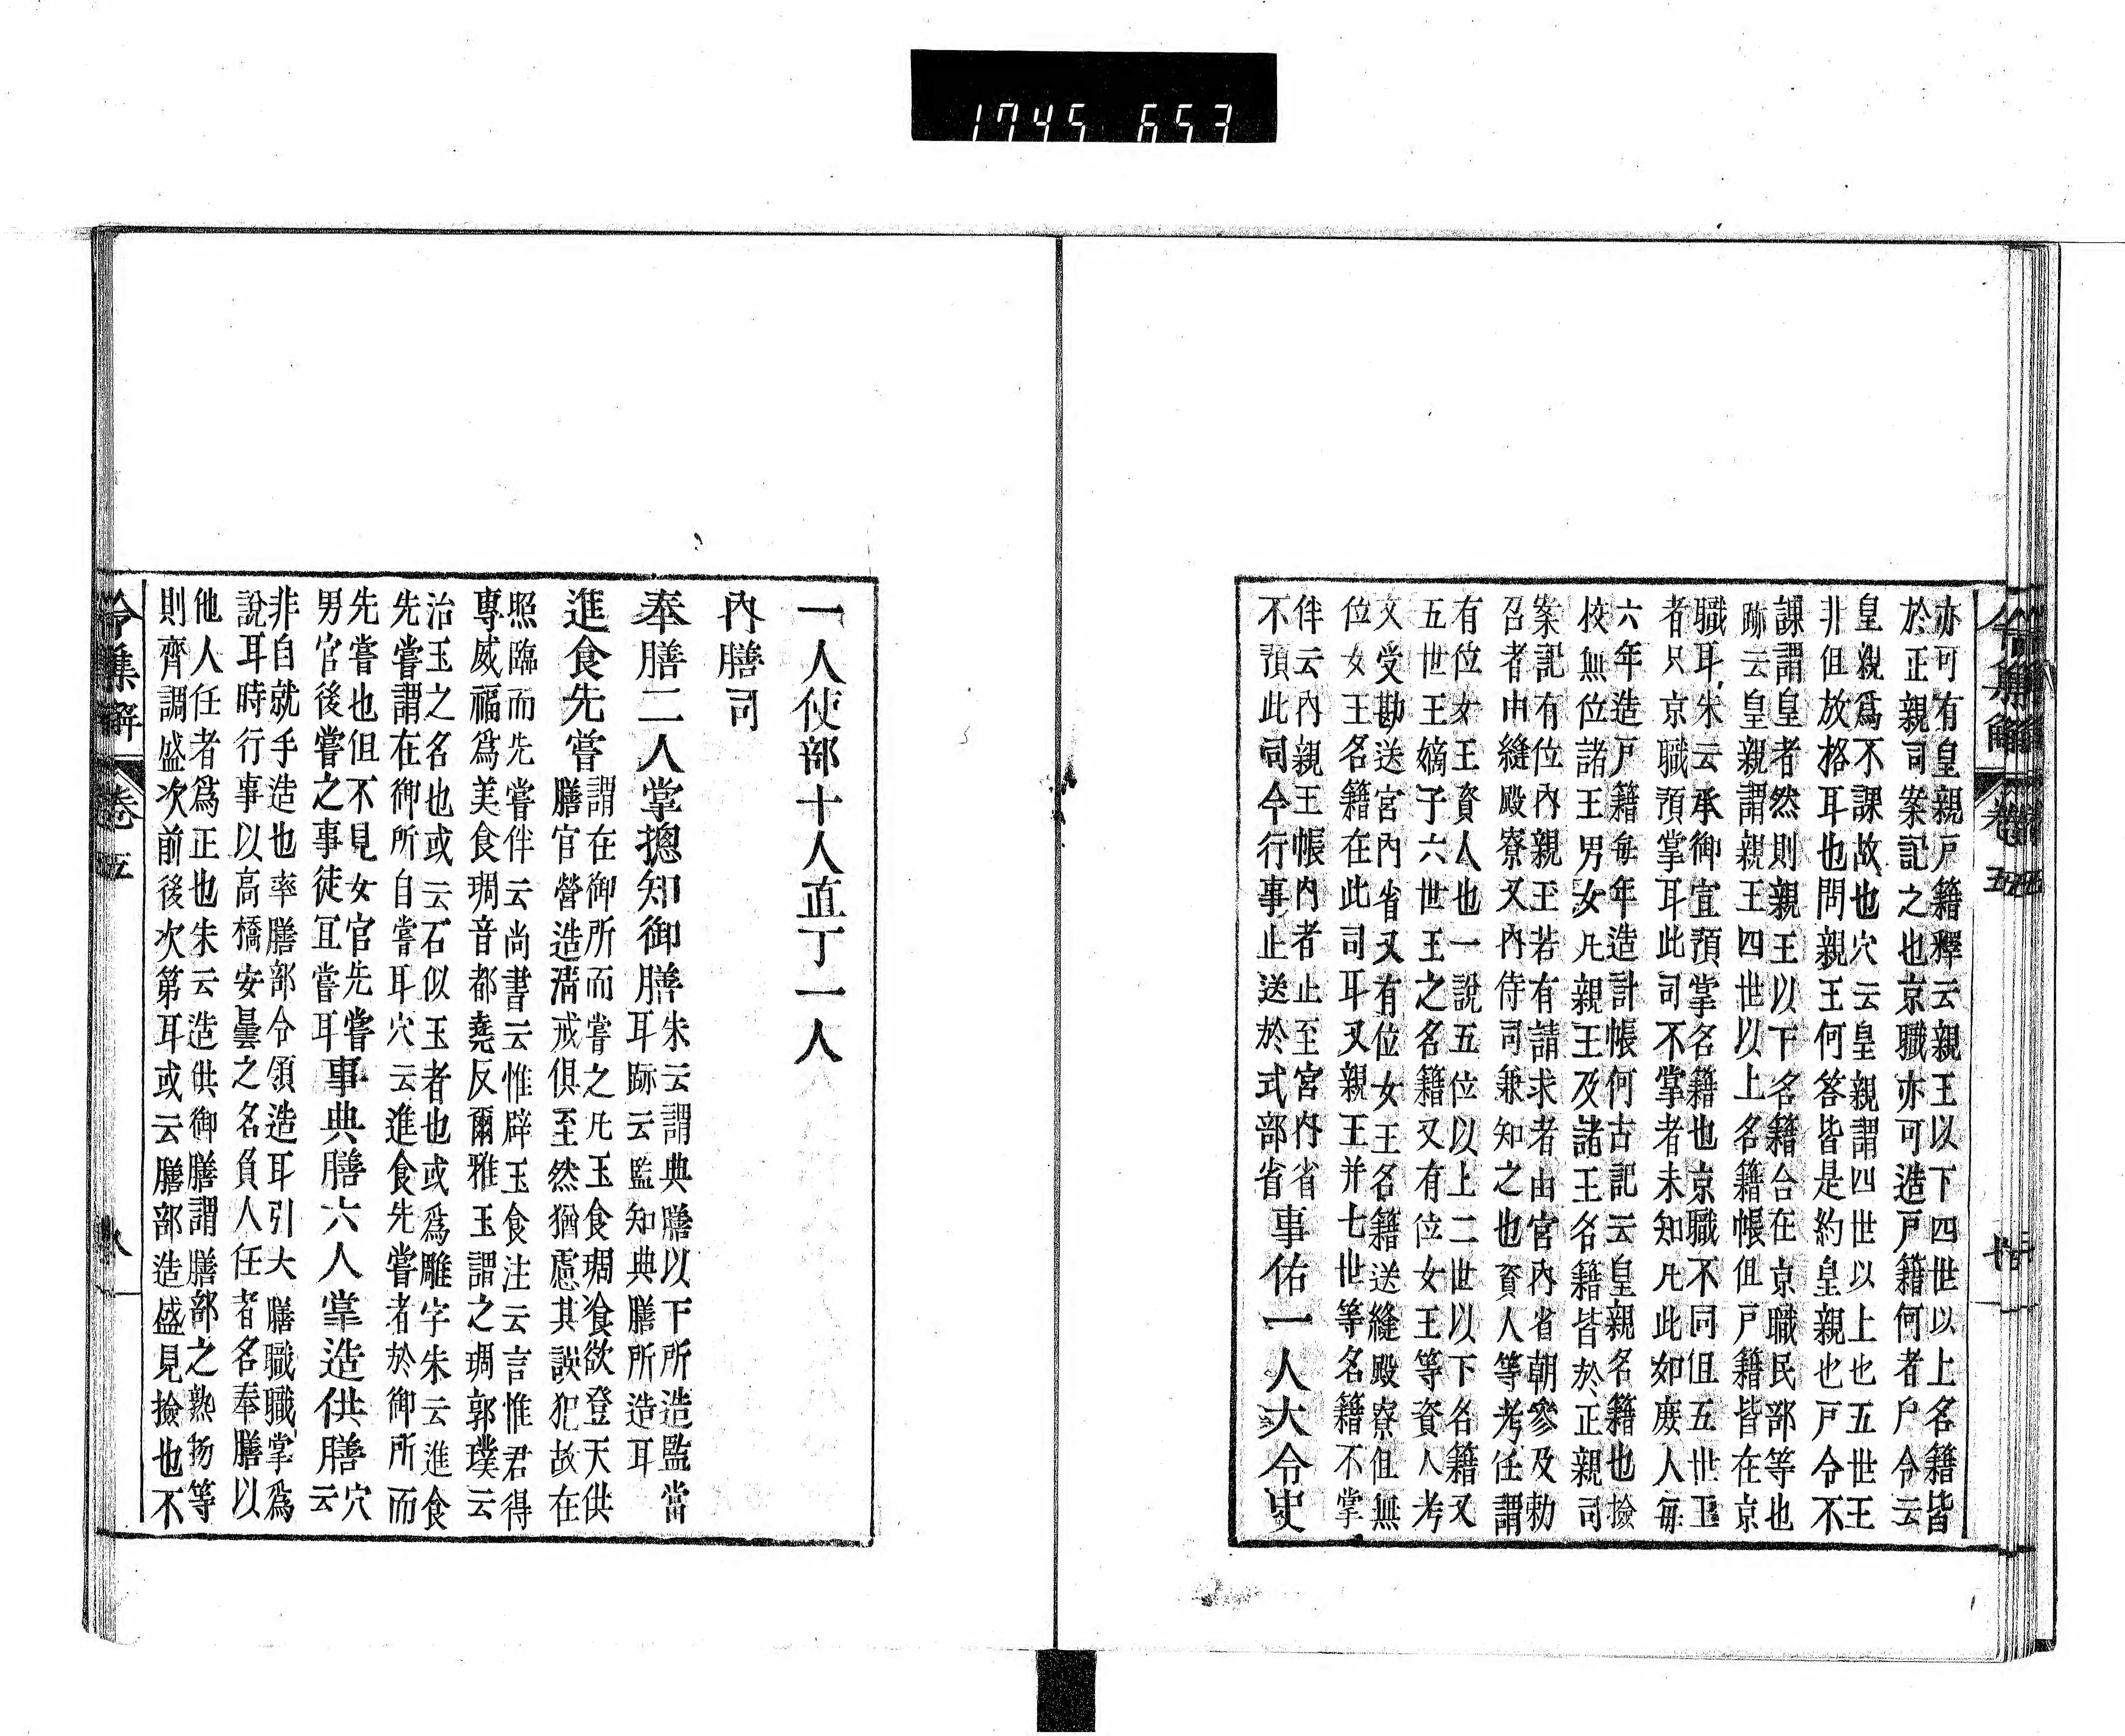 1745 653
亦可有皇親戸籍釋云親王以下四世以上名籍皆
於正親司案記之也京職亦可造戸籍何者戸令云
皇親爲不課故也穴云皇親謂四世以上也五世王
非但放格耳也問親王何答皆是約皇親也戸令不
課謂皇者然則親王以下名籍合在京職民部等也
跡云皇親謂親王四世以上名籍帳但戸籍皆在京
職耳朱云承御宜預掌名籍也京職不同但五世王
者只京職預掌耳此司不掌者未知凡此如庶人毎
六年造戸籍毎年造計帳何古記云皇親名籍也撿
校無位諸王男女凡親王及諸王名籍皆於正親司
案記有位内親王若有請求者由宮内省朝參及勅
召者由縫殿寮又内侍司兼知之也資人等考任謂
有位女王資人也一說五位以上二世以下名籍又
五世王嫡子六世王之名籍又有位女王等資人考
文受勘送宮内省又有位女王名籍送縫殿寮但無
位女王名籍在此司耳又親王并七世等名籍不掌
伴云内親王帳内者止至宮内省
不預此司今行事止送於式部省事佑一人大令史
一人使部十人直丁一人
内膳司
奉膳二人掌揔知御膳朱云謂典膳以下所造監當
耳跡云監知典膳所造耳
進食先嘗謂在御所而嘗之凡玉食琱飡欲登天供
膳官營造淸戒俱至然猶慮其誤犯故在
照臨而先嘗伴云尚書云惟辟玉食注云言惟君得
專威福爲美食琱音都堯反爾雅玉謂之琱郭璞云
治玉之名也或云石似玉者也或爲雕字朱云進食
先嘗謂在御所自嘗耳穴云進食先嘗者於御所而
先嘗也但不見女官先嘗
男官後嘗之事徒冝嘗耳事典膳六人掌造供膳穴
云
非自就手造也率膳部令領造耳引大膳職職掌爲
說耳時行事以高橋安曇之名負人任者名奉膳以
他人任者爲正也朱云造供御膳謂膳部之熟扬等
則齊調盛次前後次第耳或云膳部造盛見撿也不
令集解 卷五 八